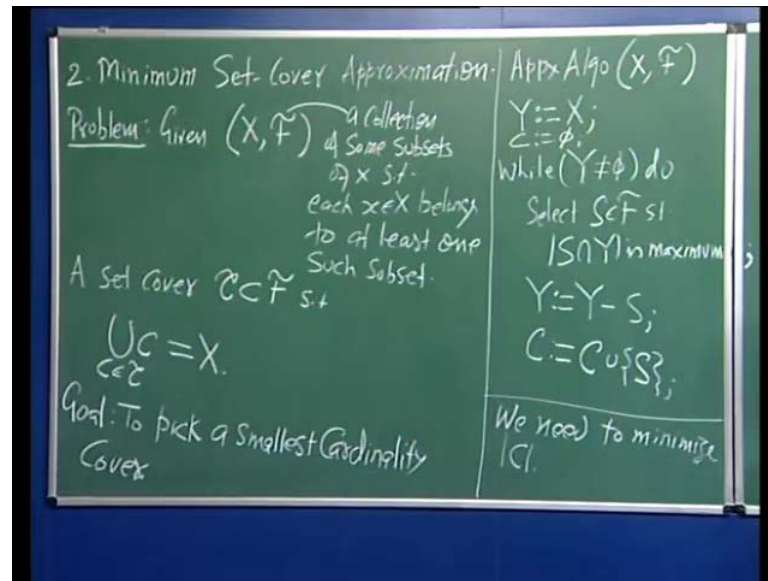 2. Minimum Set-Cover Approximation.
Problem: Given (X, F̃) a Collection
of Some Subsets
of X s.t.
each x∈X belongs
to at least one
Such Subset.
A Set Cover C̃ ⊂ F̃ s.t
⋃C = X.
C∈C̃
Goal: To pick a Smallest Cardinality
Cover
Appx Algo (X, F̃)
Y:=X;
C:=φ;
While (Y≠φ) do
Select S∈F̃ st
|S∩Y| is maximum;
Y:=Y-S;
C:=C∪{S};
We need to minimize
|C|.